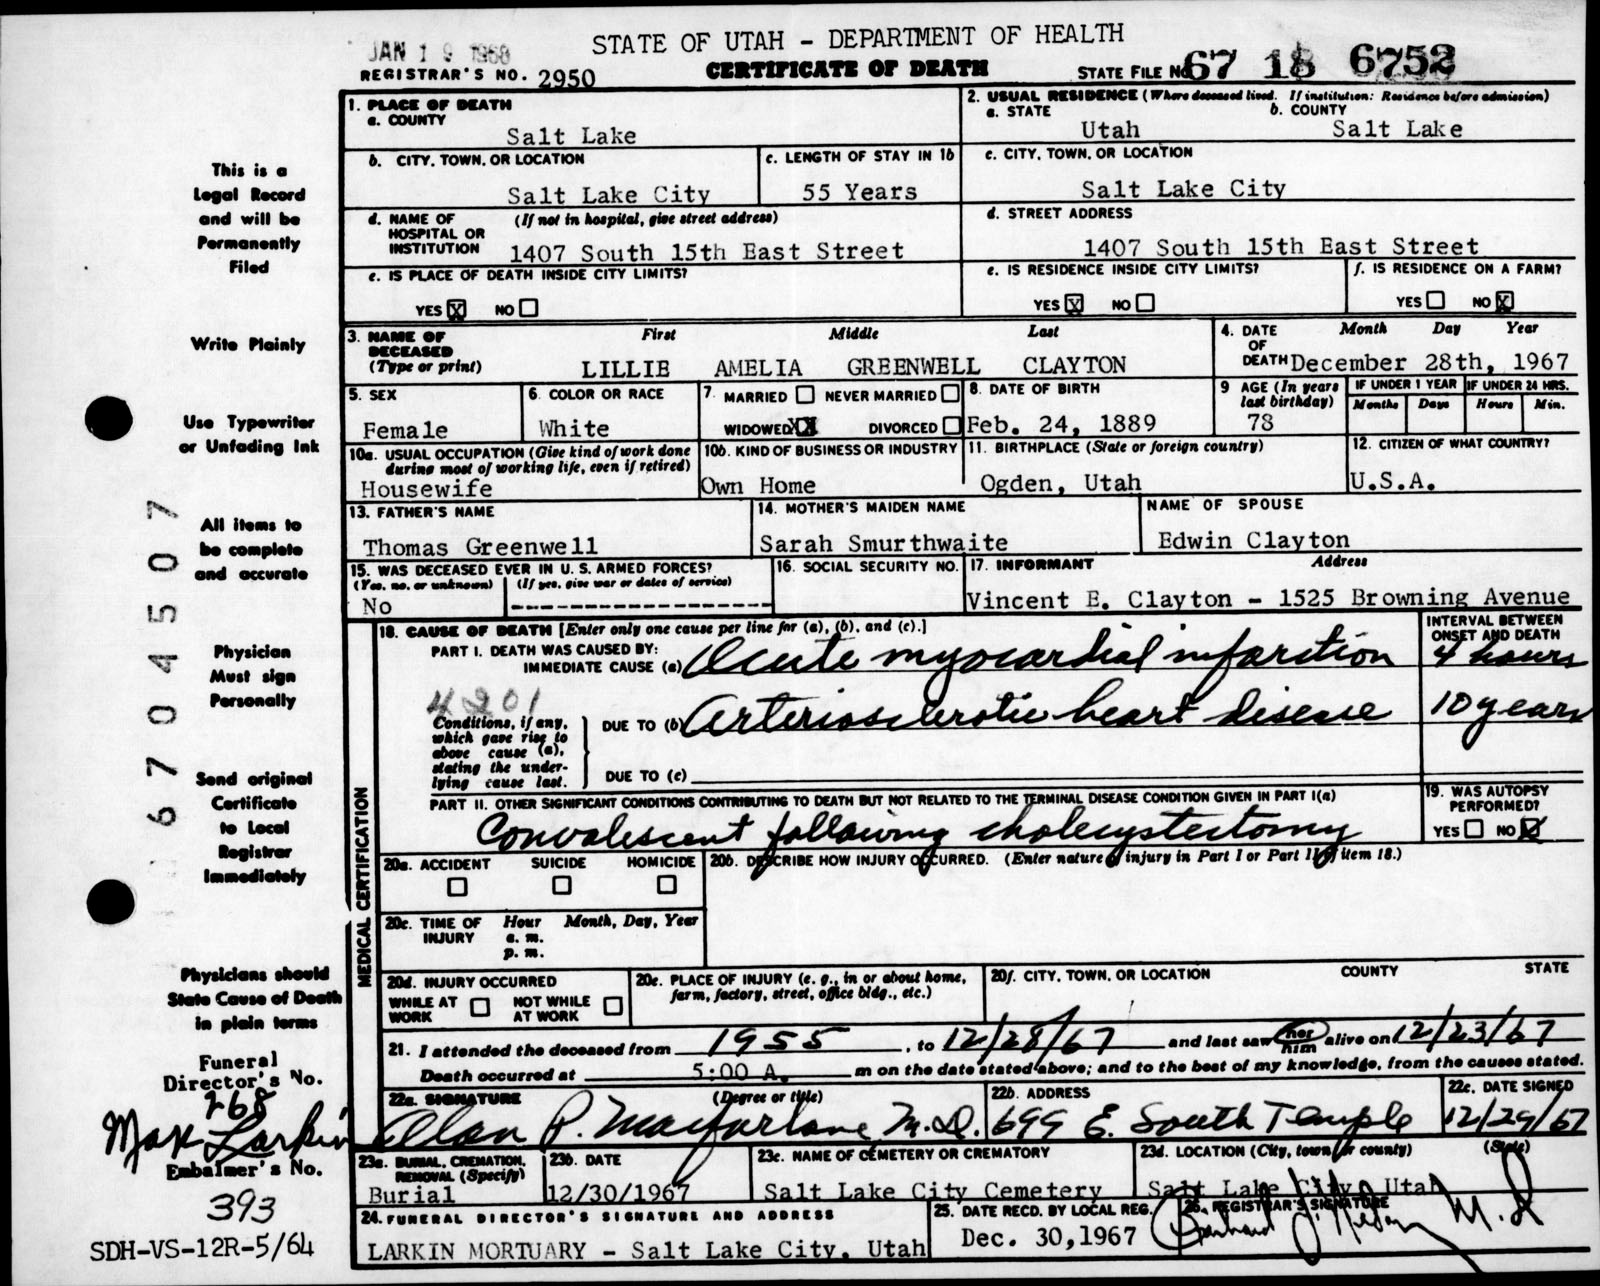 JAN 19 1968
STATE OF UTAH - DEPARTMENT OF HEALTH
REGISTRAR'S NO. 2950
CERTIFICATE OF DEATH
STATE FILE NO. 67 18 6752
1. PLACE OF DEATH
a. COUNTY
Salt Lake
2. USUAL RESIDENCE (Where deceased lived. If institution: Residence before admission)
a. STATE b. COUNTY
Utah Salt Lake
b. CITY, TOWN, OR LOCATION
Salt Lake City
c. LENGTH OF STAY IN 1b
55 Years
c. CITY, TOWN, OR LOCATION
Salt Lake City
d. NAME OF HOSPITAL OR INSTITUTION (If not in hospital, give street address)
1407 South 15th East Street
d. STREET ADDRESS
1407 South 15th East Street
e. IS PLACE OF DEATH INSIDE CITY LIMITS?
YES X NO
e. IS RESIDENCE INSIDE CITY LIMITS?
YES X NO
f. IS RESIDENCE ON A FARM?
YES NO X
3. NAME OF DECEASED (Type or print)
First Middle Last
LILLIE AMELIA GREENWELL CLAYTON
4. DATE OF DEATH Month Day Year
December 28th, 1967
5. SEX
Female
6. COLOR OR RACE
White
7. MARRIED NEVER MARRIED
WIDOWED XX DIVORCED
8. DATE OF BIRTH
Feb. 24, 1889
9 AGE (In years last birthday)
78
IF UNDER 1 YEAR
Months Days
IF UNDER 24 HRS.
Hours Min.
10a. USUAL OCCUPATION (Give kind of work done during most of working life, even if retired)
Housewife
10b. KIND OF BUSINESS OR INDUSTRY
Own Home
11. BIRTHPLACE (State or foreign country)
Ogden, Utah
12. CITIZEN OF WHAT COUNTRY?
U.S.A.
13. FATHER'S NAME
Thomas Greenwell
14. MOTHER'S MAIDEN NAME
Sarah Smurthwaite
NAME OF SPOUSE
Edwin Clayton
15. WAS DECEASED EVER IN U. S. ARMED FORCES?
(Yes, no, or unknown) (If yes, give war or dates of service)
No
16. SOCIAL SECURITY NO.
17. INFORMANT Address
Vincent E. Clayton - 1525 Browning Avenue
MEDICAL CERTIFICATION
18. CAUSE OF DEATH [Enter only one cause per line for (a), (b), and (c).]
INTERVAL BETWEEN ONSET AND DEATH
PART I. DEATH WAS CAUSED BY:
IMMEDIATE CAUSE (a) Acute myocardial infarction 4 hours
4201
Conditions, if any, which gave rise to above cause (a), stating the underlying cause last.
DUE TO (b) Arteriosclerotic heart disease 10 years
DUE TO (c)
PART II. OTHER SIGNIFICANT CONDITIONS CONTRIBUTING TO DEATH BUT NOT RELATED TO THE TERMINAL DISEASE CONDITION GIVEN IN PART I(a)
Convalescent following cholecystectomy
19. WAS AUTOPSY PERFORMED?
YES NO X
20a. ACCIDENT SUICIDE HOMICIDE
20b. DESCRIBE HOW INJURY OCCURRED. (Enter nature of injury in Part I or Part II of item 18.)
20c. TIME OF INJURY Hour Month, Day, Year
a. m.
p. m.
20d. INJURY OCCURRED
WHILE AT WORK NOT WHILE AT WORK
20e. PLACE OF INJURY (e. g., in or about home, farm, factory, street, office bldg., etc.)
20f. CITY, TOWN, OR LOCATION COUNTY STATE
21. I attended the deceased from 1955, to 12/28/67 and last saw her him alive on 12/23/67
Death occurred at 5:00 A. m on the date stated above; and to the best of my knowledge, from the causes stated.
22a. SIGNATURE (Degree or title)
Alan P. Macfarlane M.D.
22b. ADDRESS
699 E. South Temple
22c. DATE SIGNED
12/29/67
23a. BURIAL, CREMATION, REMOVAL (Specify)
Burial
23b. DATE
12/30/1967
23c. NAME OF CEMETERY OR CREMATORY
Salt Lake City Cemetery
23d. LOCATION (City, town, or county) (State)
Salt Lake City, Utah
24. FUNERAL DIRECTOR'S SIGNATURE AND ADDRESS
LARKIN MORTUARY - Salt Lake City, Utah
25. DATE RECD. BY LOCAL REG.
Dec. 30,1967
26. REGISTRAR'S SIGNATURE
M.D.
This is a
Legal Record
and will be
Permanently
Filed
Write Plainly
Use Typewriter
or Unfading Ink
All items to
be complete
and accurate
Physician
Must sign
Personally
Send original
Certificate
to Local
Registrar
Immediately
Physicians should
State Cause of Death
in plain terms
Funeral
Director's No.
268
Max Larkin
Embalmer's No.
393
SDH-VS-12R-5/64
6704507